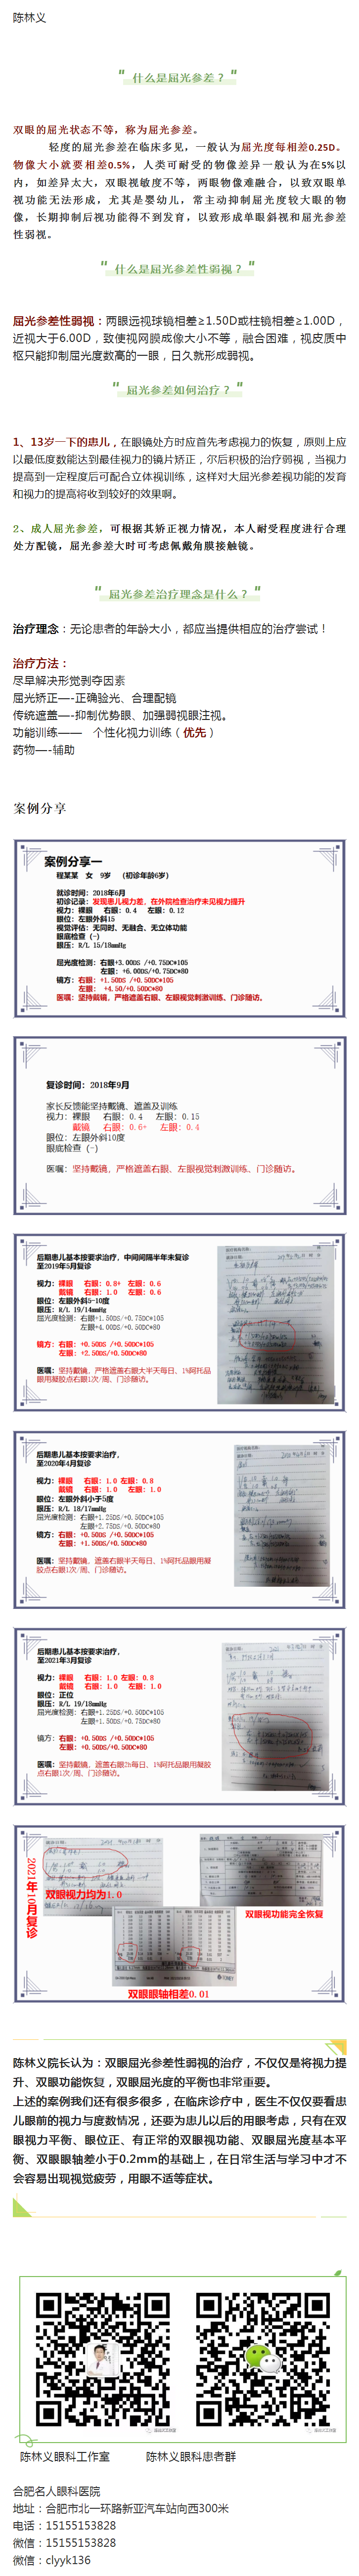 陈林义
" 什么是屈光参差？ "
双眼的屈光状态不等，称为屈光参差。
轻度的屈光参差在临床多见，一般认为屈光度每相差0.25D。
物像大小就要相差0.5%，人类可耐受的物像差异一般认为在5%以
内，如差异太大，双眼视敏度不等，两眼物像难融合，以致双眼单
视功能无法形成，尤其是婴幼儿，常主动抑制屈光度较大眼的物
像，长期抑制后视功能得不到发育，以致形成单眼斜视和屈光参差
性弱视。
" 什么是屈光参差性弱视？ "
屈光参差性弱视：两眼远视球镜相差≥1.50D或柱镜相差≥1.00D，
近视大于6.00D，致使视网膜成像大小不等，融合困难，视皮质中
枢只能抑制屈光度数高的一眼，日久就形成弱视。
" 屈光参差如何治疗？ "
1、13岁一下的患儿，在眼镜处方时应首先考虑视力的恢复，原则上应
以最低度数能达到最佳视力的镜片矫正，尔后积极的治疗弱视，当视力
提高到一定程度后可配合立体视训练，这样对大屈光参差视功能的发育
和视力的提高将收到较好的效果啊。
2、成人屈光参差，可根据其矫正视力情况，本人耐受程度进行合理
处方配镜，屈光参差大时可考虑佩戴角膜接触镜。
" 屈光参差治疗理念是什么？ "
治疗理念：无论患者的年龄大小，都应当提供相应的治疗尝试！
治疗方法：
尽早解决形觉剥夺因素
屈光矫正—-正确验光、合理配镜
传统遮盖—-抑制优势眼、加强弱视眼注视。
功能训练—— 个性化视力训练（优先）
药物—-辅助
案例分享
案例分享一
程某某 女 9岁 （初诊年龄6岁）
就诊时间：2018年6月
初诊记录：发现患儿视力差，在外院检查治疗未见视力提升
视力：裸眼 右眼：0.4 左眼：0.12
眼位：左眼外斜15
视觉评估：无同时、无融合、无立体功能
眼底检查（-）
眼压：R/L 15/18mmHg
屈光度检测：右眼+3.00DS /+0.75DC*105
左眼：+6.00DS/+0.75DC*80
镜方：右眼：+1.50DS /+0.50DC*105
左眼： +4.50/+0.50DC*80
医嘱：坚持戴镜，严格遮盖右眼、左眼视觉刺激训练、门诊随访。
复诊时间：2018年9月
家长反馈能坚持戴镜、遮盖及训练
视力：裸眼 右眼：0.4 左眼：0.15
戴镜 右眼：0.6+ 左眼：0.4
眼位：左眼外斜10度
眼底检查（-）
医嘱：坚持戴镜，严格遮盖右眼、左眼视觉刺激训练、门诊随访。
后期患儿基本按要求治疗，中间间隔半年未复诊
至2019年5月复诊
视力：裸眼 右眼：0.8+ 左眼：0.6
戴镜 右眼：1.0 左眼：0.6
眼位：左眼外斜5-10度
眼压：R/L 19/14mmHg
屈光度检测：右眼+1.50DS/+0.75DC*105
左眼+4.00DS/+0.50DC*80
镜方：右眼：+0.50DS /+0.50DC*105
左眼：+2.50DS/+0.50DC*80
医嘱：坚持戴镜，严格遮盖右眼大半天每日、1%阿托品
眼用凝胶点右眼1次/周、门诊随访。
后期患儿基本按要求治疗，
至2020年4月复诊
视力：裸眼 右眼：1.0 左眼：0.8
戴镜 右眼：1.0 左眼：1.0
眼位：左眼外斜小于5度
眼压：R/L 18/17mmHg
屈光度检测：右眼+1.25DS/+0.50DC*105
左眼+2.75DS/+0.50DC*80
镜方：右眼：+0.50DS /+0.50DC*105
左眼：+1.50DS/+0.50DC*80
医嘱：坚持戴镜，遮盖右眼半天每日、1%阿托品眼用凝
胶点右眼1次/周、门诊随访。
后期患儿基本按要求治疗，
至2021年3月复诊
视力：裸眼 右眼：1.0 左眼：0.8
戴镜 右眼：1.0 左眼：1.0
眼位：正位
眼压：R/L 19/18mmHg
屈光度检测：右眼+1.25DS/+0.50DC*105
左眼+1.50DS/+0.75DC*80
镜方：右眼：+0.50DS /+0.50DC*105
左眼：+0.50DS/+0.50DC*80
医嘱：坚持戴镜，遮盖右眼2h每日、1%阿托品眼用凝胶
点右眼1次/周、门诊随访。
2021年10月复诊
双眼视力均为1.0
双眼视功能完全恢复
双眼眼轴相差0.01
陈林义院长认为：双眼屈光参差性弱视的治疗，不仅仅是将视力提
升、双眼功能恢复，双眼屈光度的平衡也非常重要。
上述的案例我们还有很多很多，在临床诊疗中，医生不仅仅要看患
儿眼前的视力与度数情况，还要为患儿以后的用眼考虑，只有在双
眼视力平衡、眼位正、有正常的双眼视功能、双眼屈光度基本平
衡、双眼眼轴差小于0.2mm的基础上，在日常生活与学习中才不
会容易出现视觉疲劳，用眼不适等症状。
陈林义眼科工作室 陈林义眼科患者群
合肥名人眼科医院
地址：合肥市北一环路新亚汽车站向西300米
电话：15155153828
微信：15155153828
微信：clyyk136